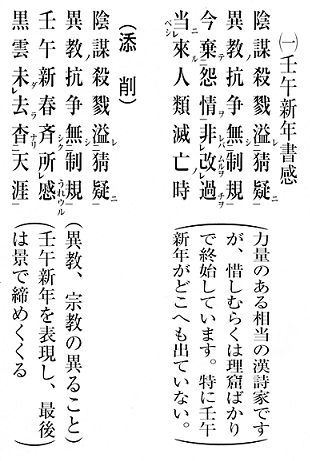 ㈠壬午新年書感
陰謀殺戮溢猜疑
異教抗争無制規
今棄怨情非改過
当來人類滅亡時
力量のある相当の漢詩家です
が、惜しむらくは理窟ばかり
で終始しています。特に壬午
新年がどこへも出ていない。
（添削）
陰謀殺戮溢猜疑
異教抗争無制規
壬午新春斉所感
黒雲未去杳天涯
（異教、宗教の異ること）
（壬午新年を表現し、最後
は景で締めくくる）